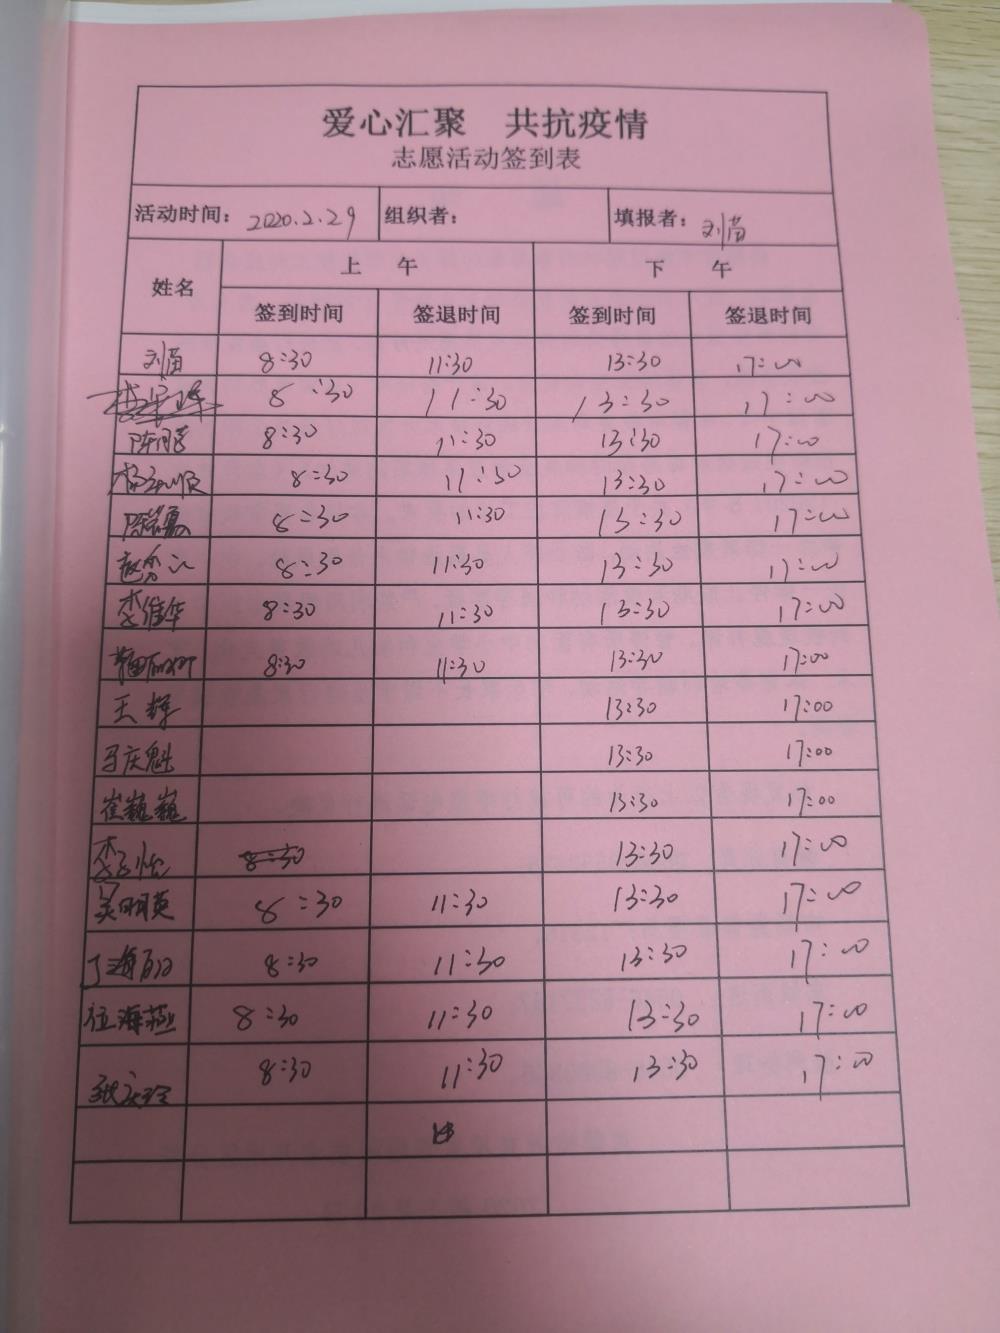 爱心汇聚 共抗疫情
志愿活动签到表
活动时间： 2020.2.29 组织者： 填报者： 刘苗
姓名 上 午 下 午
签到时间 签退时间 签到时间 签退时间
刘苗 8:30 11:30 13:30 17:00
8:30 11:30 13:30 17:00
陈 8:30 11:30 13:30 17:00
杨 顺 8:30 11:30 13:30 17:00
陈 8:30 11:30 13:30 17:00
赵 8:30 11:30 13:30 17:00
李维华 8:30 11:30 13:30 17:00
8:30 11:30 13:30 17:00
王辉 13:30 17:00
马庆魁 13:30 17:00
崔巍巍 13:30 17:00
李 8:30 13:30 17:00
吴明英 8:30 11:30 13:30 17:00
丁海 8:30 11:30 13:30 17:00
位海燕 8:30 11:30 13:30 17:00
张庆玲 8:30 11:30 13:30 17:00